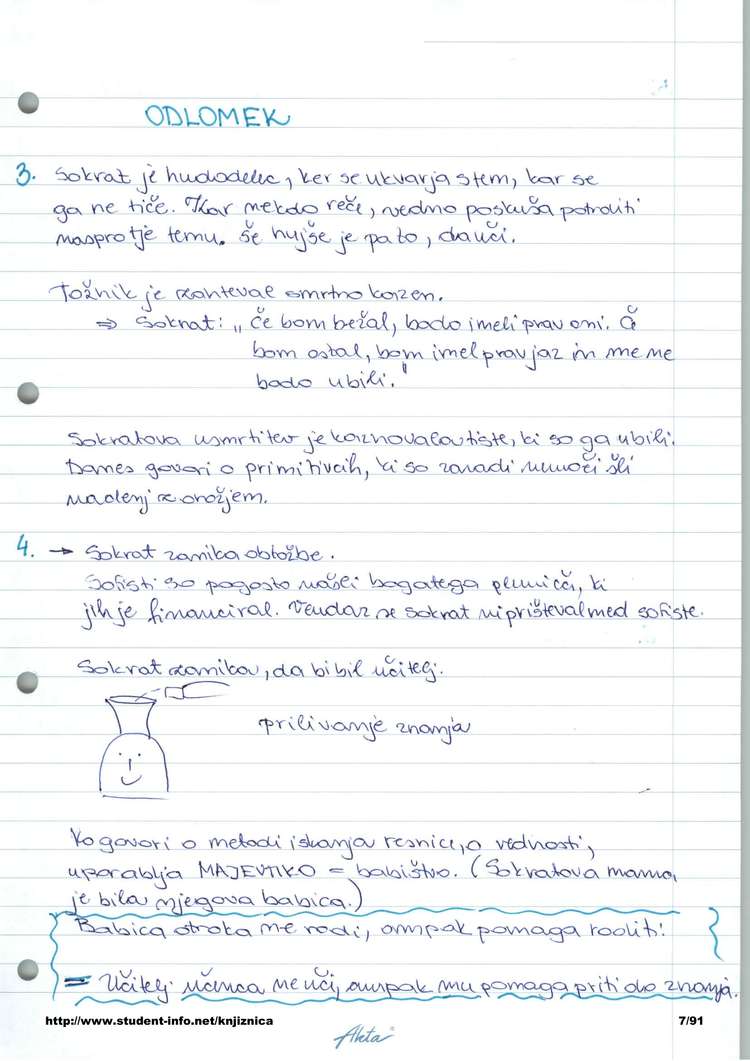 ODLOMEK
3. Sokrat je hudodelec, ker se ukvarja s tem, kar se
ga ne tiče. Kar nekdo reče, vedno poskuša potrditi
nasprotje temu. Še hujše je pa to, da uči.
Tožnik je zahteval smrtno kazen.
⇒ Sokrat: „Če bom bežal, bodo imeli prav oni. Č
bom ostal, bom imel prav jaz in me ne
bodo ubili."
Sokratova usmrtitev je kaznovala tiste, ki so ga ubili.
Danes govori o primitivcih, ki so zaradi nemoči šli
nadenj z orožjem.
4. → Sokrat zanika obtožbe.
Sofisti so pogosto našli bogatega plemiča, ki
jih je financiral. Vendar se Sokrat ni prišteval med sofiste.
Sokrat zanika, da bi bil učitelj.
prilivanje znanja
Ko govori o metodi iskanja resnice, o vednosti,
uporablja MAJEVTIKO = babištvo. (Sokratova mama
je bila njegova babica.)
Babica otroka ne rodi, ampak pomaga roditi!
= Učitelj učenca ne uči, ampak mu pomaga priti do znanja.
http://www.student-info.net/knjiznica
7/91
Ahta